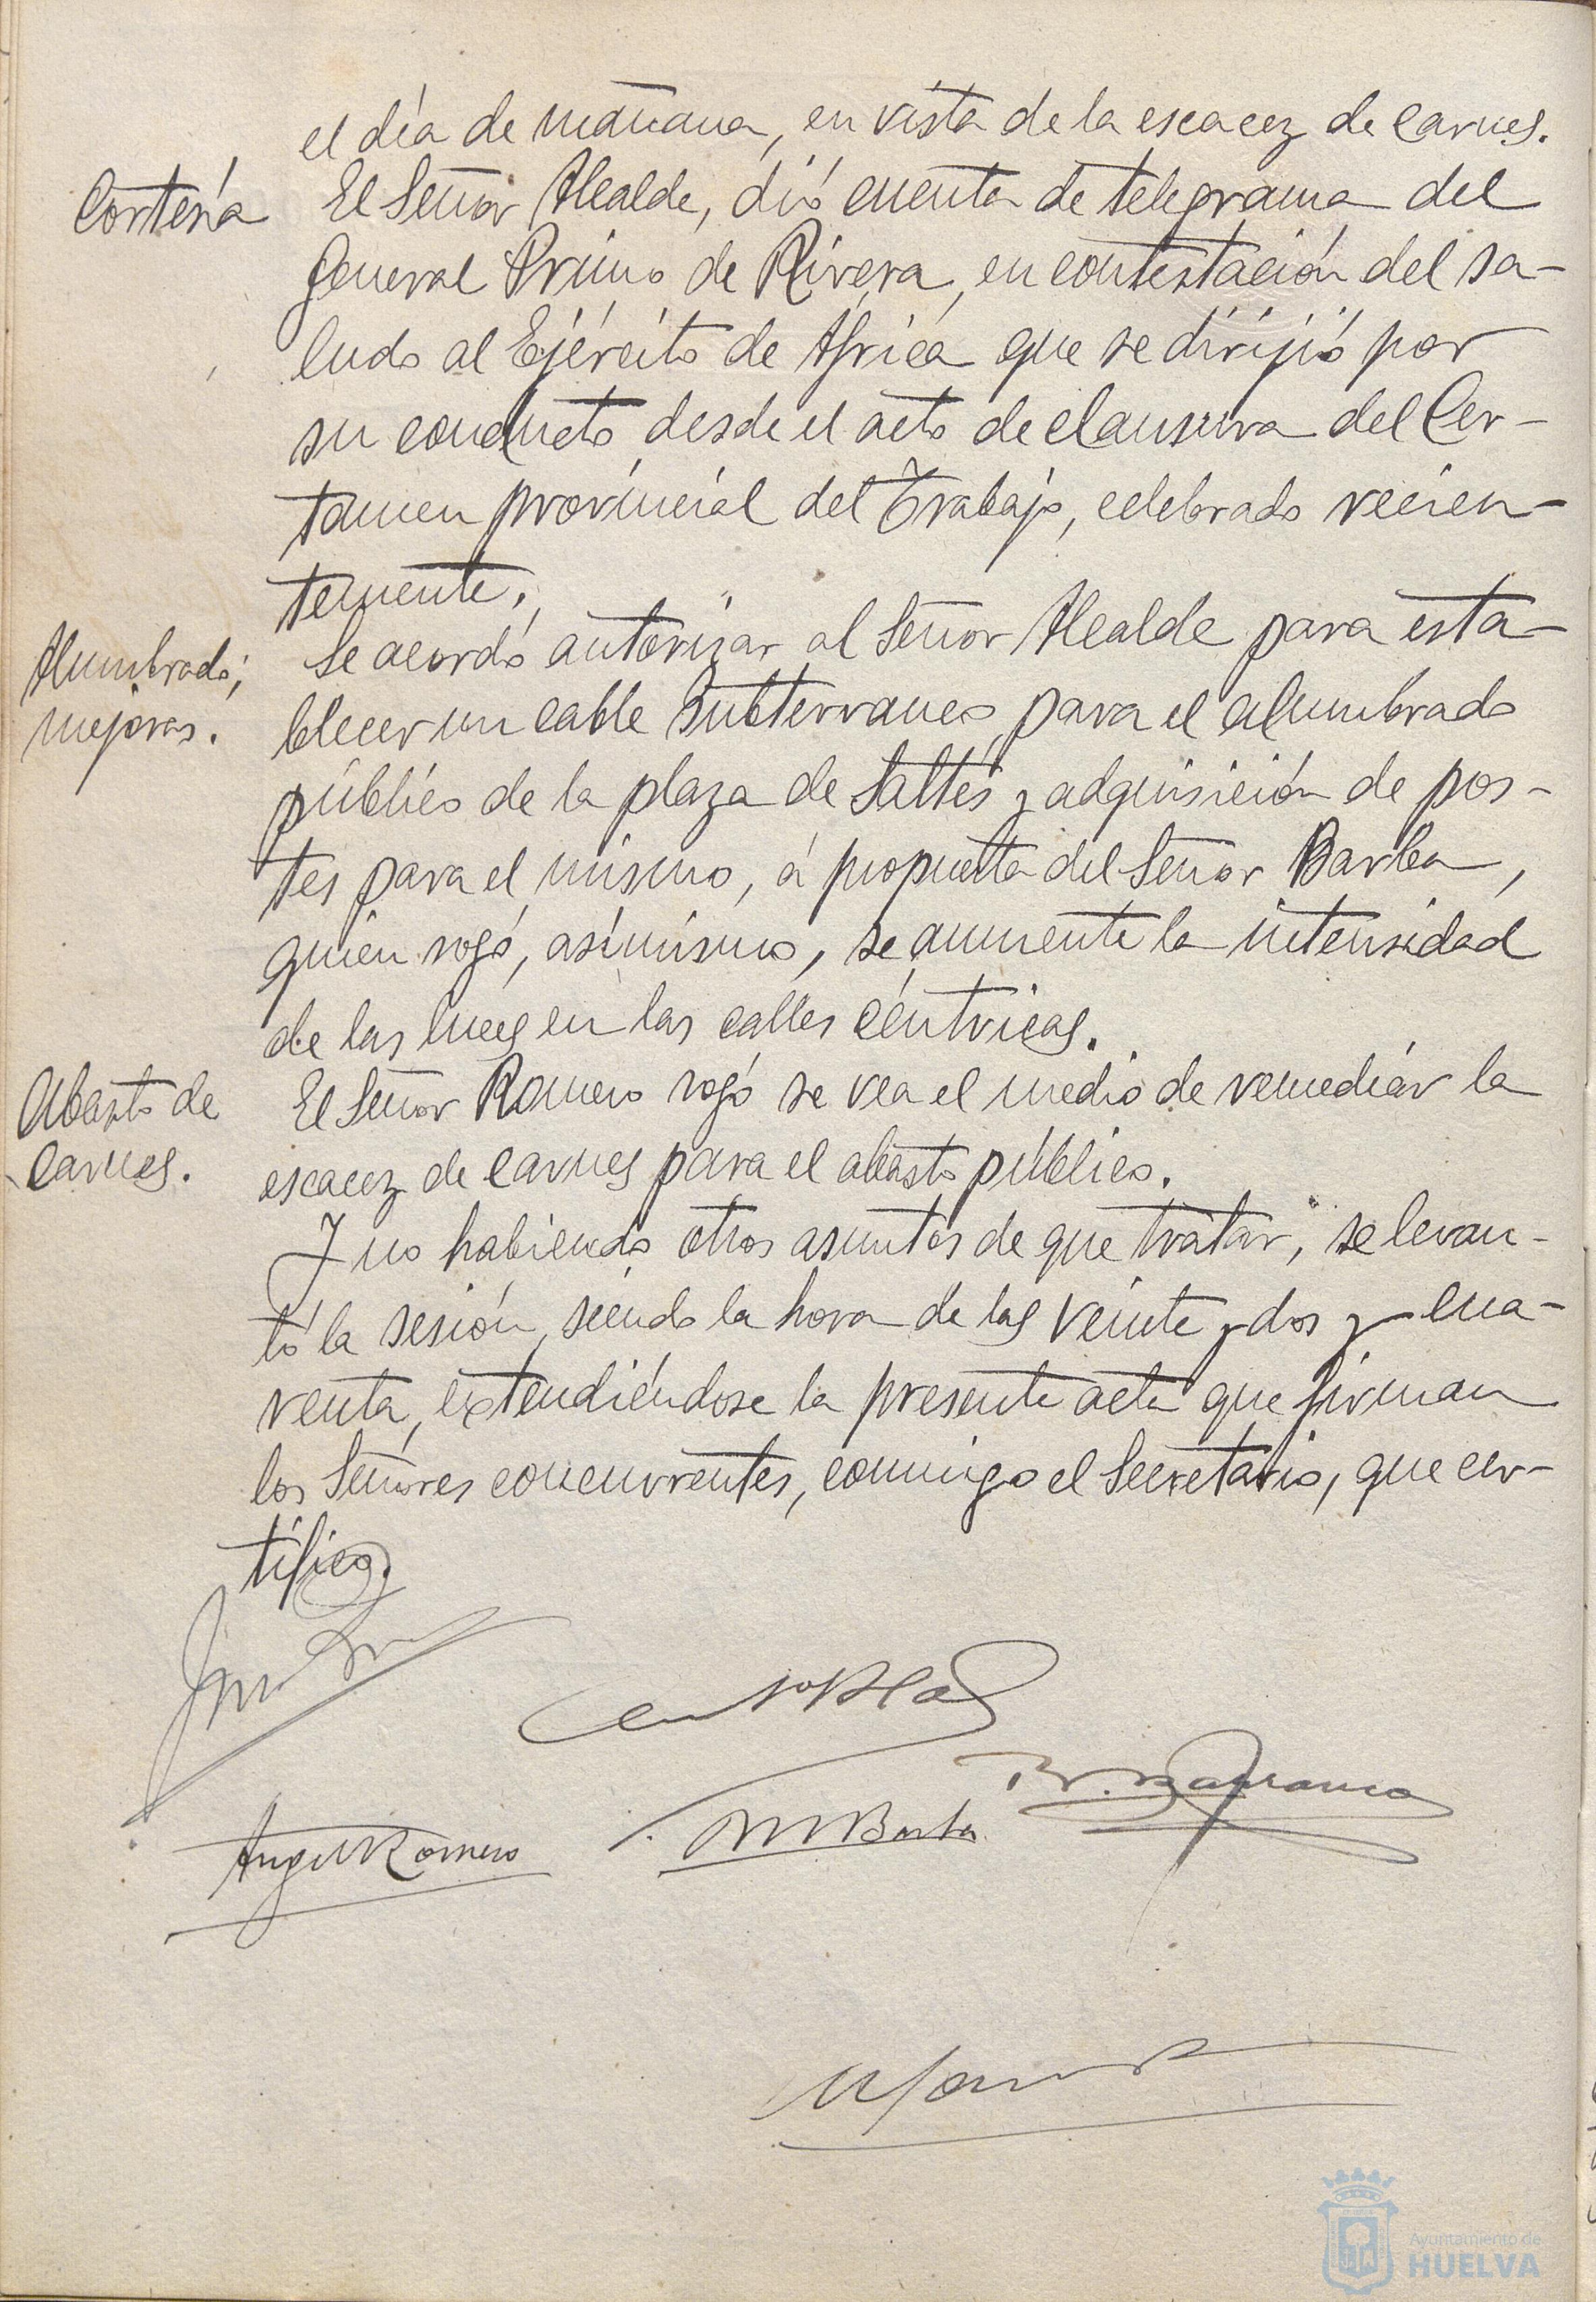 el día de mañana, en vista de la escacez de carnes.
Cortesía
El Señor Alcalde, dió cuenta de telegrama del
General Primo de Rivera, en contestación del sa-
ludo al Ejército de África que se dirijió por
su conducto desde el acto de clausura del Cer-
tamen provincial del Trabajo, celebrado recien-
temente.
Alumbrado;
mejoras.
Se acordó autorizar al Señor Alcalde para esta-
blecer un cable subterraneo, para el alumbrado
público de la plaza de Saltés y adquisición de pos-
tes para el mismo, á propuesta del Señor Barba,
quien rogó, asímismo, se aumente la intensidad
de las luces en las calles céntricas.
Abasto de
Carnes.
El Señor Romero rogó se vea el medio de remediar la
escacez de carnes para el abasto público.
Y no habiendo otros asuntos de que tratar, se levan-
tó la sesión, siendo la hora de las veinte y dos y cua-
renta, extendiéndose la presente acta que firman
los Señores concurrentes, conmigo el Secretario, que cer-
tífico.
Angel Romero
M Barba
Ayuntamiento de
HUELVA